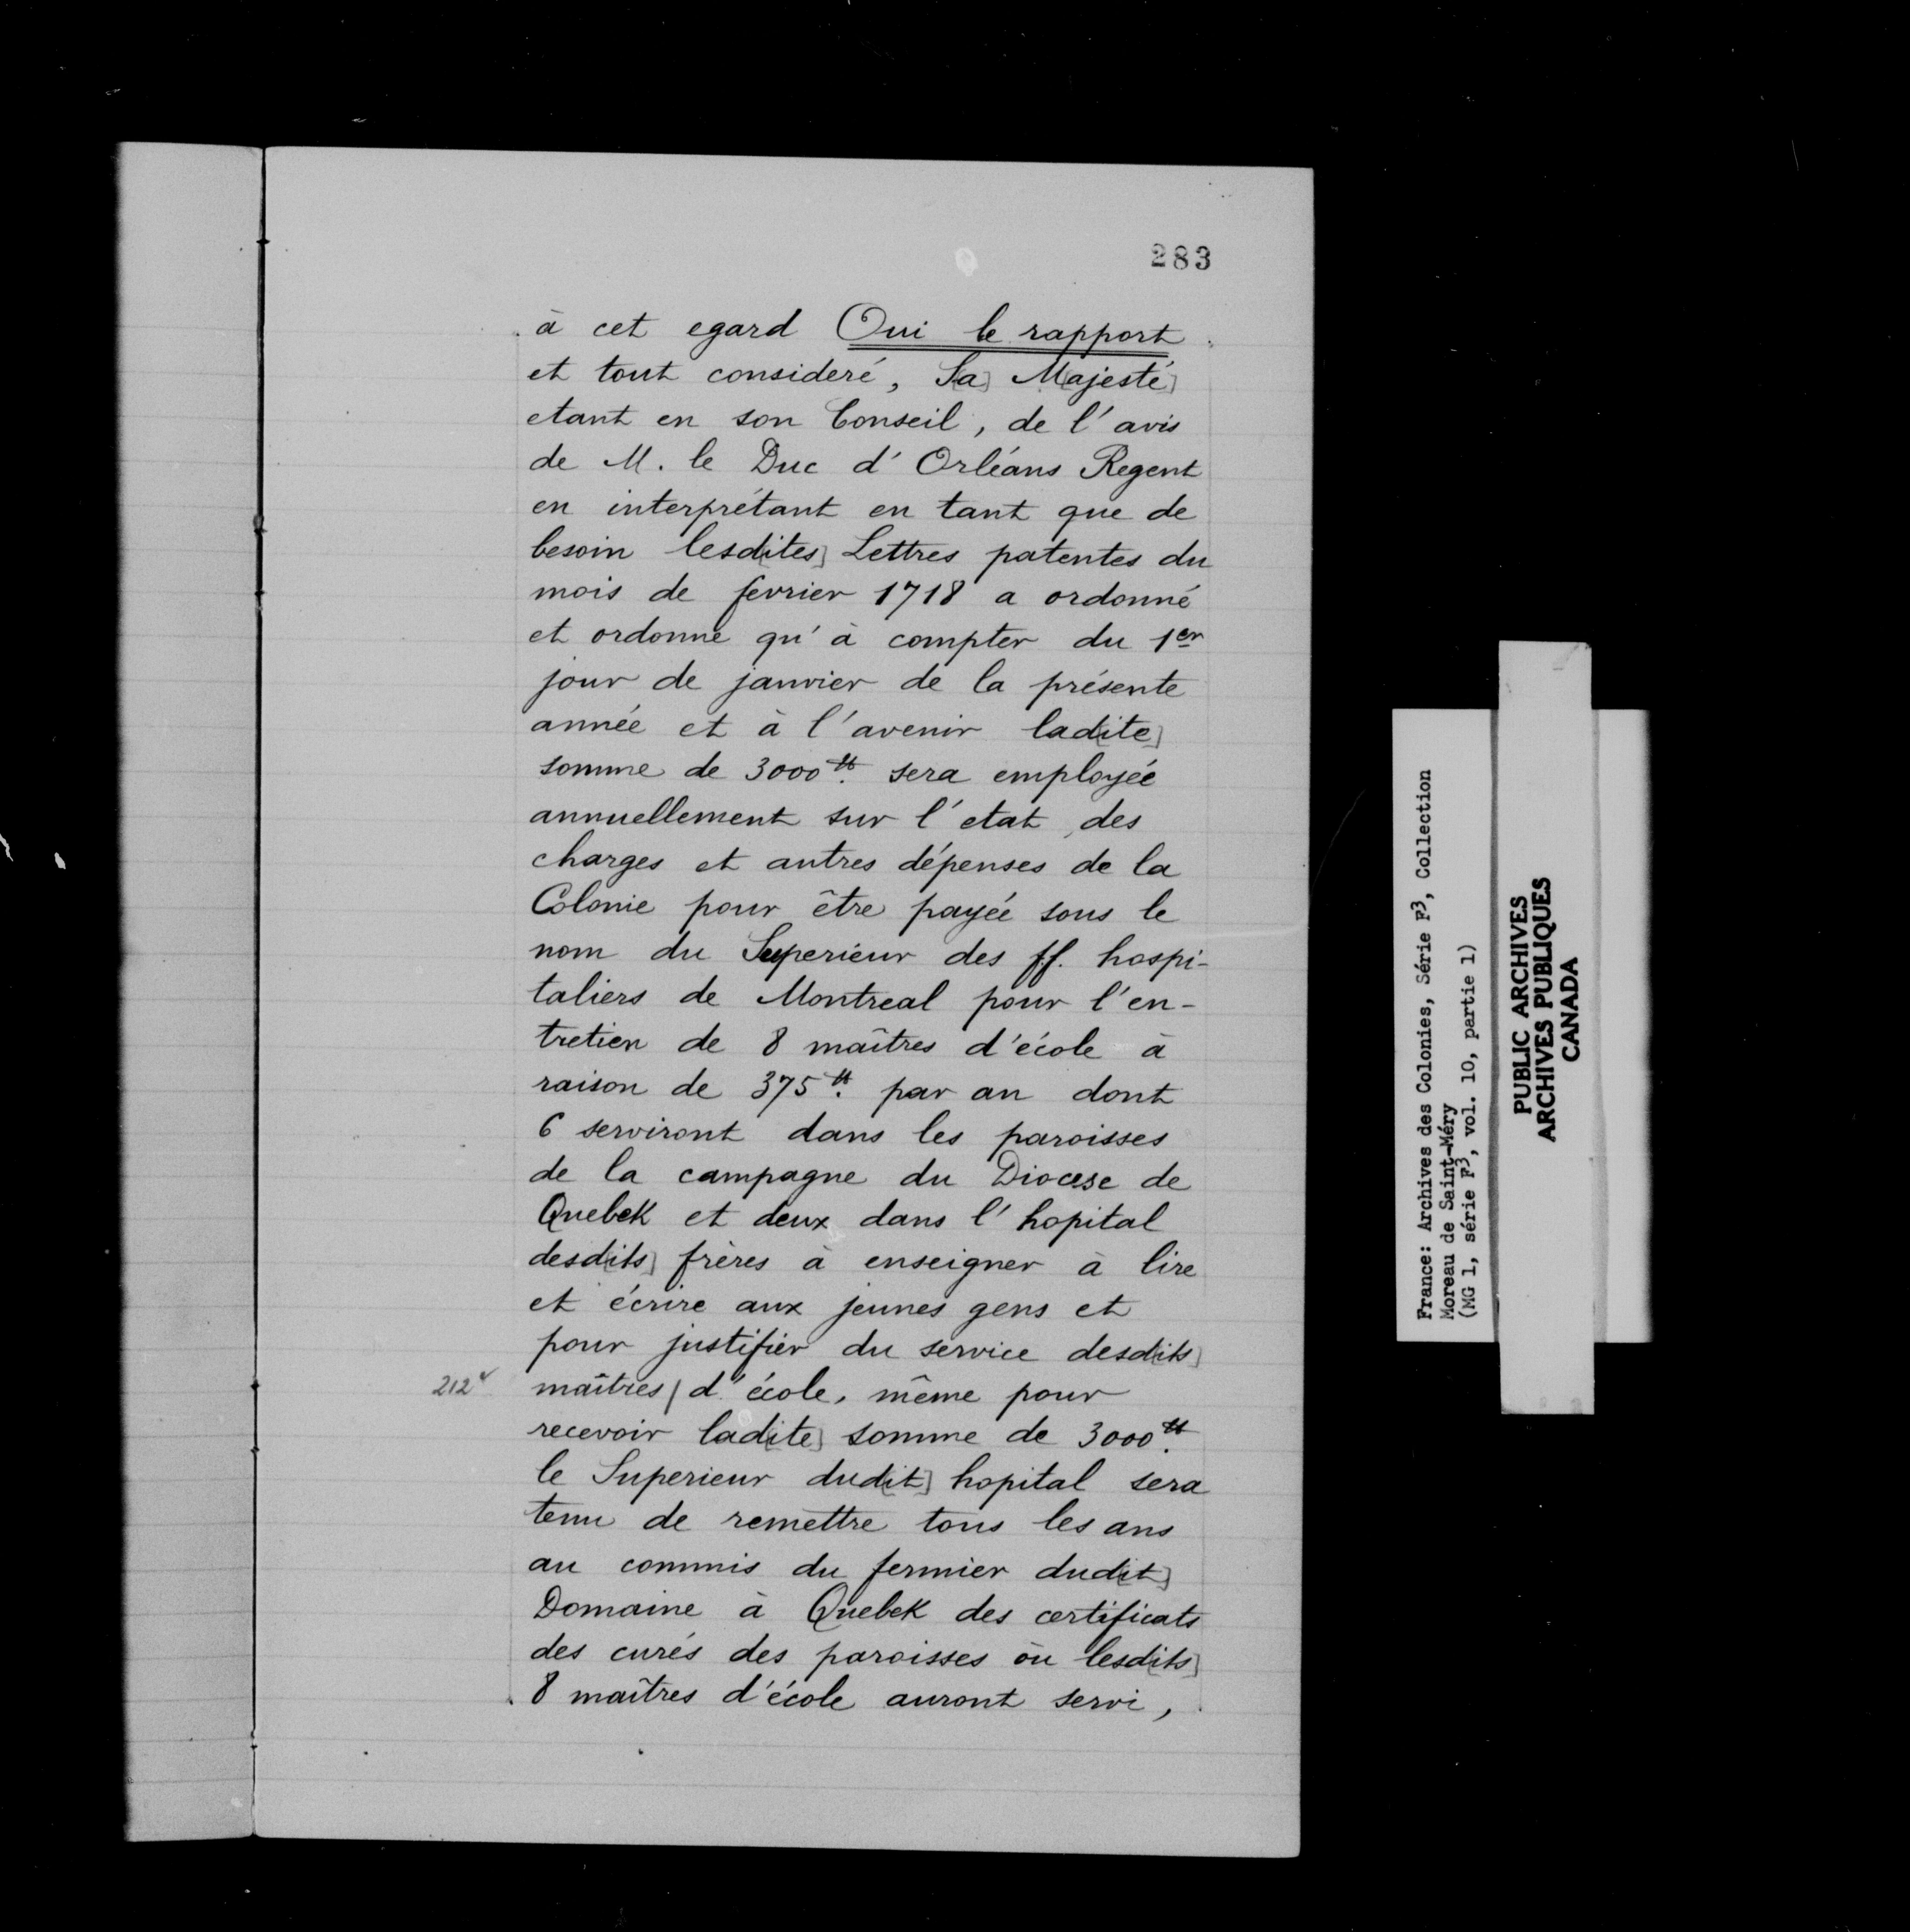 283
à cet egard Oui le rapport
et tout consideré, S[a] M[ajesté]
etant en son Conseil, de l'avis
de M. le Duc d'Orléans Regent
en interprétant en tant que de
besoin lesd[ites] Lettres patentes du
mois de fevrier 1718 a ordonné
et ordonne qu'à compter du 1er
jour de janvier de la présente
année et à l'avenir lad[ite]
somme de 3000tt. sera employée
annuellement sur l'etat des
charges et autres dépenses de la
Colonie pour être payée sous le
nom du Superieur des ff. hospi-
taliers de Montreal pour l'en-
tretien de 8 maîtres d'école à
raison de 375tt. par an dont
6 serviront dans les paroisses
de la campagne du Diocese de
Quebek et deux dans l'hopital
desd[its] frères à enseigner à lire
et écrire aux jeunes gens et
pour justifier du service desd[its]
212v maîtres / d'école, même pour
recevoir lad[ite] somme de 3000tt.
le Superieur dud[it] hopital sera
tenu de remettre tous les ans
au commis du fermier dud[it]
Domaine à Quebek des certificats
des curés des paroisses où lesd[its]
8 maîtres d'école auront servi,
France: Archives des Colonies, Série F3, Collection
Moreau de Saint-Méry
(MG 1, série F3, vol. 10, partie 1)
PUBLIC ARCHIVES
ARCHIVES PUBLIQUES
CANADA